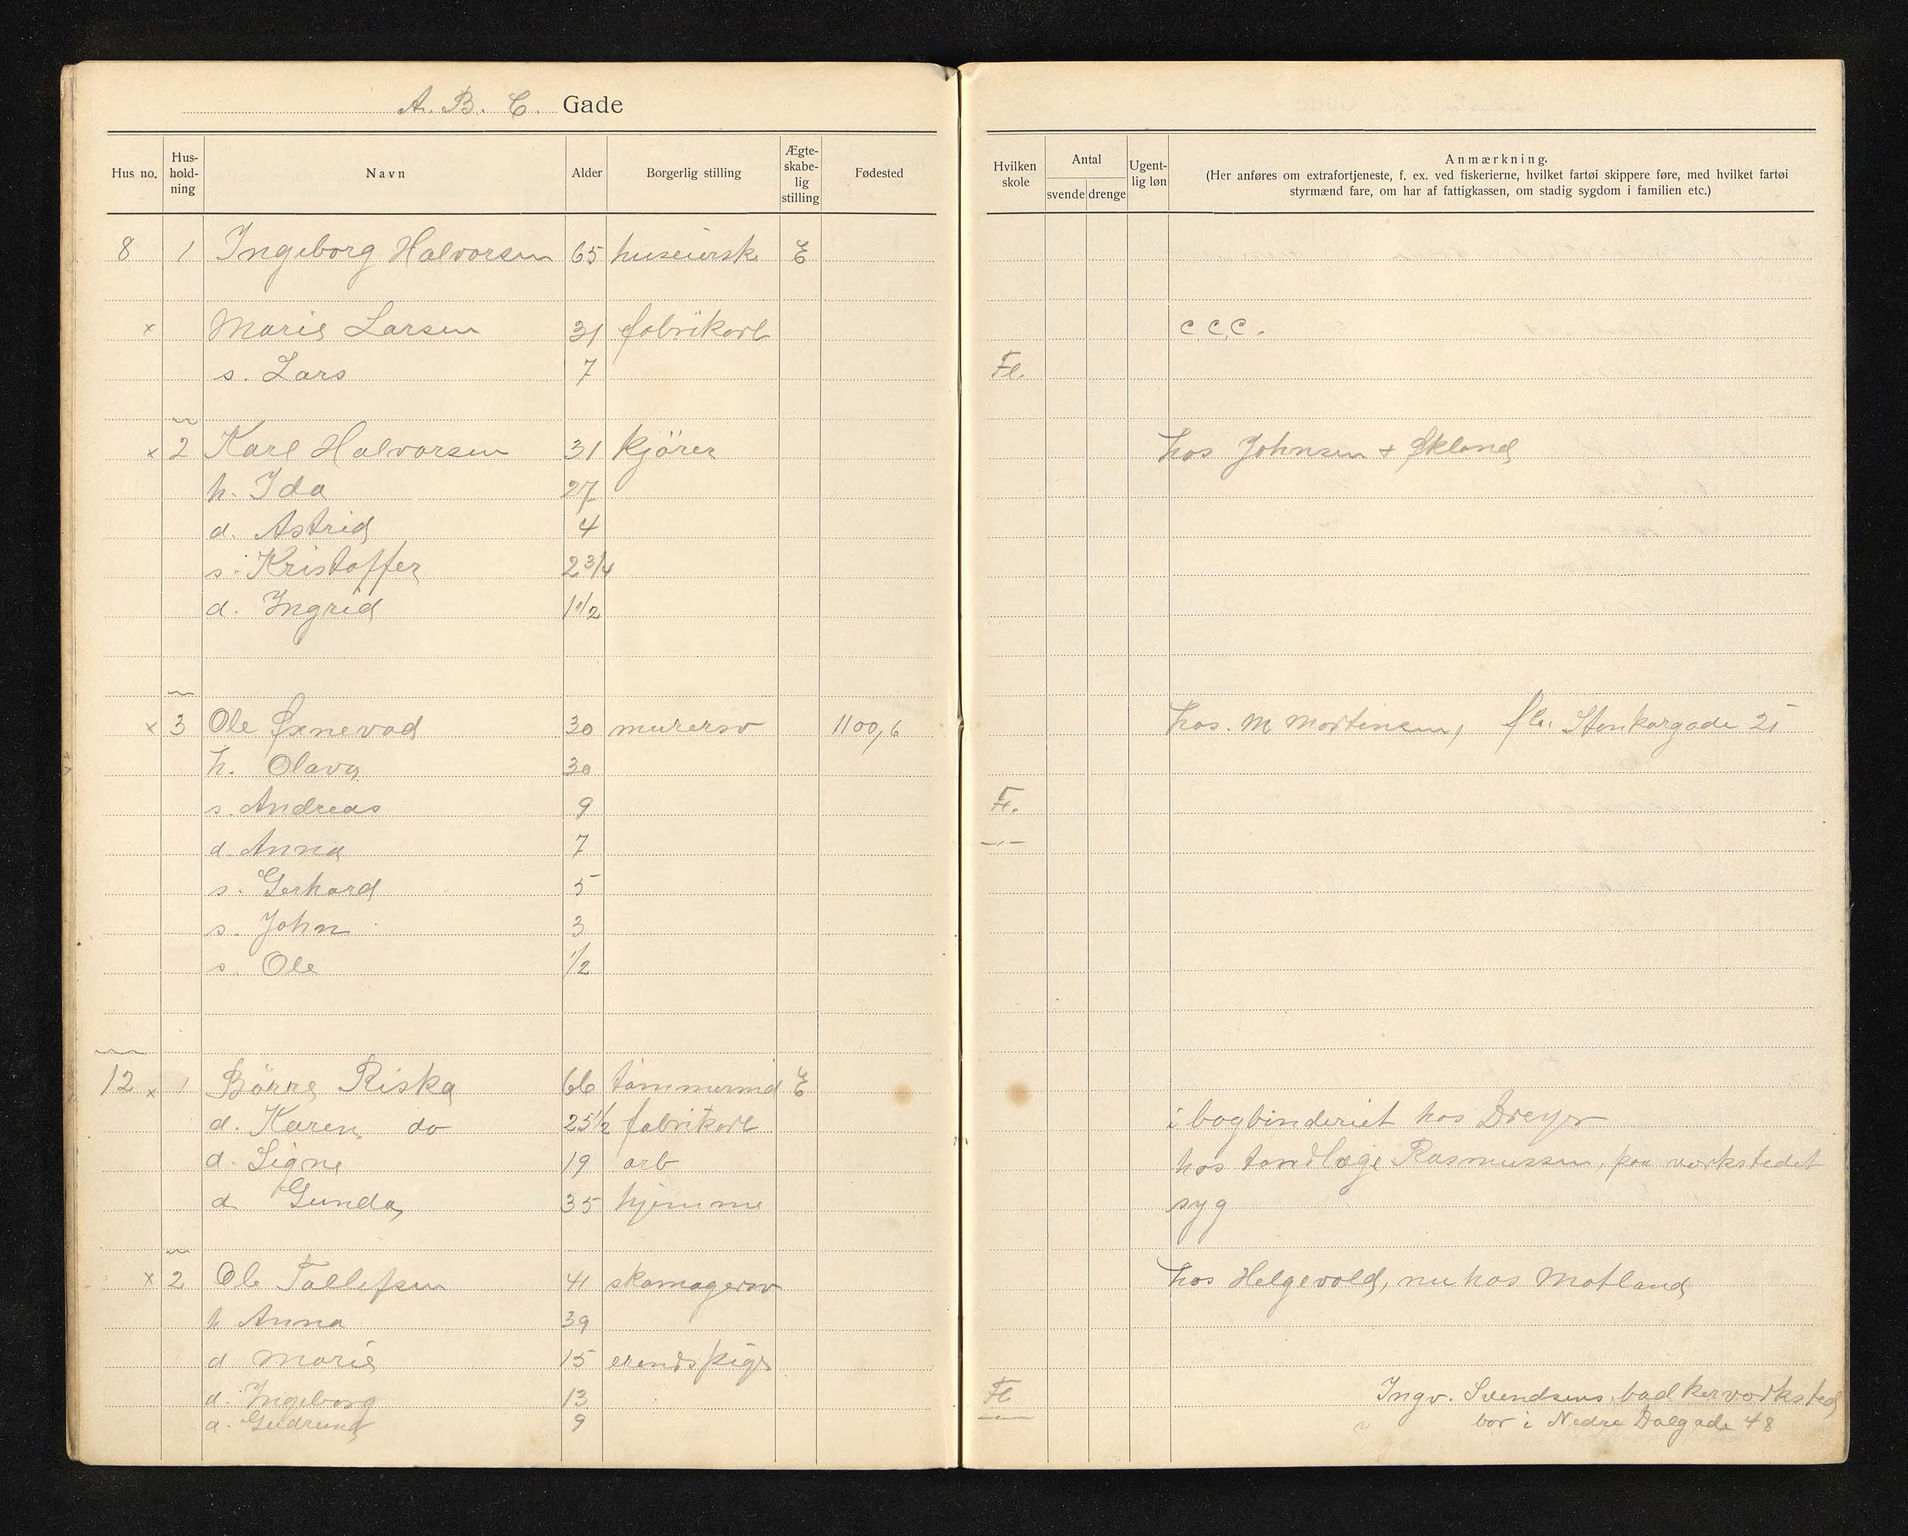 A. B. C. Gade
Hus no. Hus-hold-ning Navn Alder Borgerlig stilling Ægte-skabe-lig stilling Fødested Hvilken skole Antal svende drenge Ugent-lig løn Anmærkning.
(Her anføres om extrafortjeneste, f. ex. ved fiskerierne, hvilket fartøi skippere føre, med hvilket fartøi
styrmænd fare, om har af fattigkassen, om stadig sygdom i familien etc.)
8 1 Ingeborg Halvorsen 65 huseiersk E
x Marie Larsen 31 fabrikarb c.c.c.
s. Lars 7 Fl.
x 2 Karl Halvorsen 31 kjører hos Johnsen + Økland
h. Ida 27
d. Astrid 4
s. Kristoffer 2 3/4
d. Ingrid 1 1/2
x 3 Ole Øxnevad 30 murersv 1100,6 hos. M Mortensen, fl. Stenkargade 25
h. Olava 30
s. Andreas 9 Fl.
d. Anna 7 -"-
s. Gerhard 5
s. John 3
s. Ole 1/2
12 x 1 Börre Riska 66 tømmermd E
d. Karen do 25 1/2 fabrikarb i bogbinderiet hos Dreyer
d. Signe 19 arb hos tandlæge Rasmussen, paa verkstedet
d Gunda 35 hjemme syg
x 2 Ole Tollefsen 41 skomagersv hos Helgevold, nu hos Motland
h Anna 39
d Marie 15 erendspige
d. Ingeborg 13 Fl Ingv. Svendsens, badkerverksted
d. Gudrund 9 -"- bor i Nedre Dalgade 48